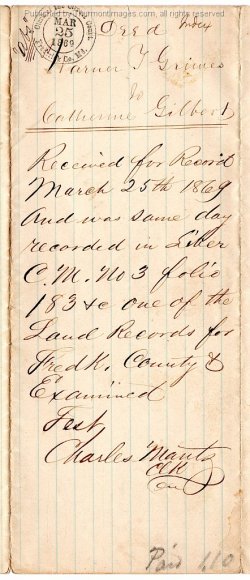 Published by: ThurmontImages.com
MAR
25
1869
Deed
Warner T Grimes
to
Catherine Gilbert
Received for Record
March 25th 1869
And was same day
recorded in Liber
C.M. No 3 folio
183 &c one of the
Land Records for
Fredk. County &
Examined
Test,
Charles Mantz
Clk
Paid 1.10